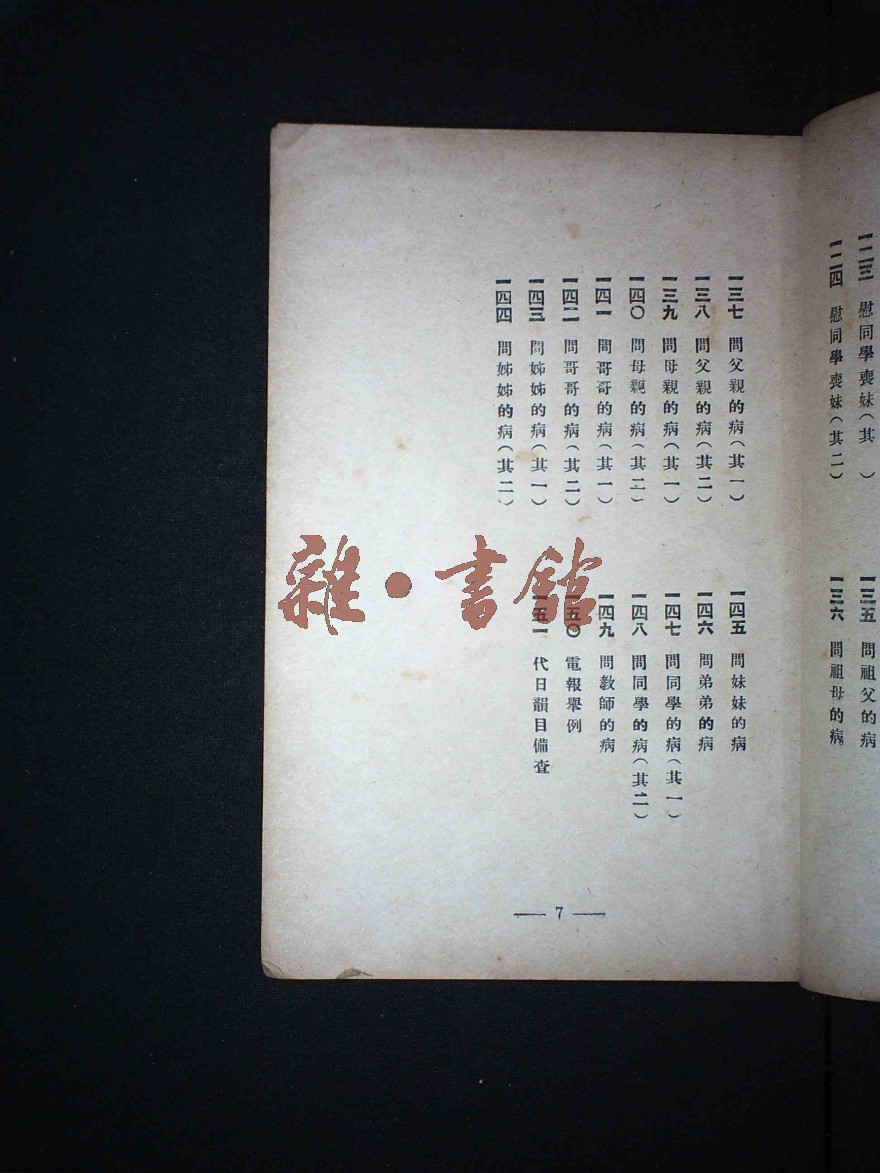 一二三 慰同學喪妹（其 ）
一二四 慰同學喪妹（其二）
一三五 問祖父的病
一三六 問祖母的病
一三七 問父親的病（其一）
一三八 問父親的病（其二）
一三九 問母親的病（其一）
一四〇 問母親的病（其二）
一四一 問哥哥的病（其一）
一四二 問哥哥的病（其二）
一四三 問姊姊的病（其一）
一四四 問姊姊的病（其二）
一四五 問妹妹的病
一四六 問弟弟的病
一四七 問同學的病（其一）
一四八 問同學的病（其二）
一四九 問教師的病
一五〇 電報舉例
一五一 代日韻目備查
— 7 —
雜·書館